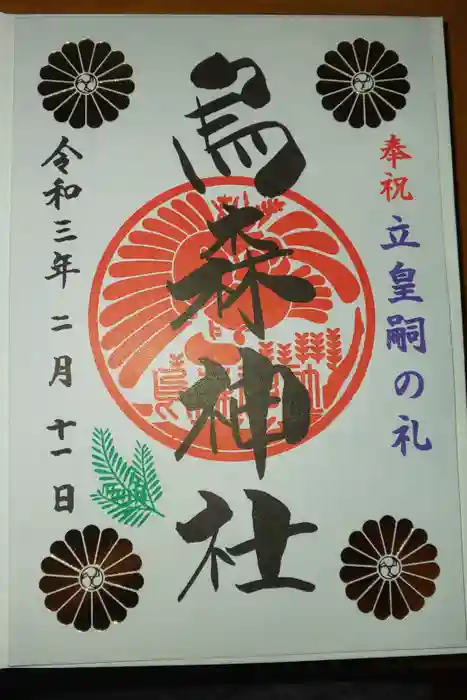 奉祝 立皇嗣の礼
烏森神社
令和三年 二月 十一日